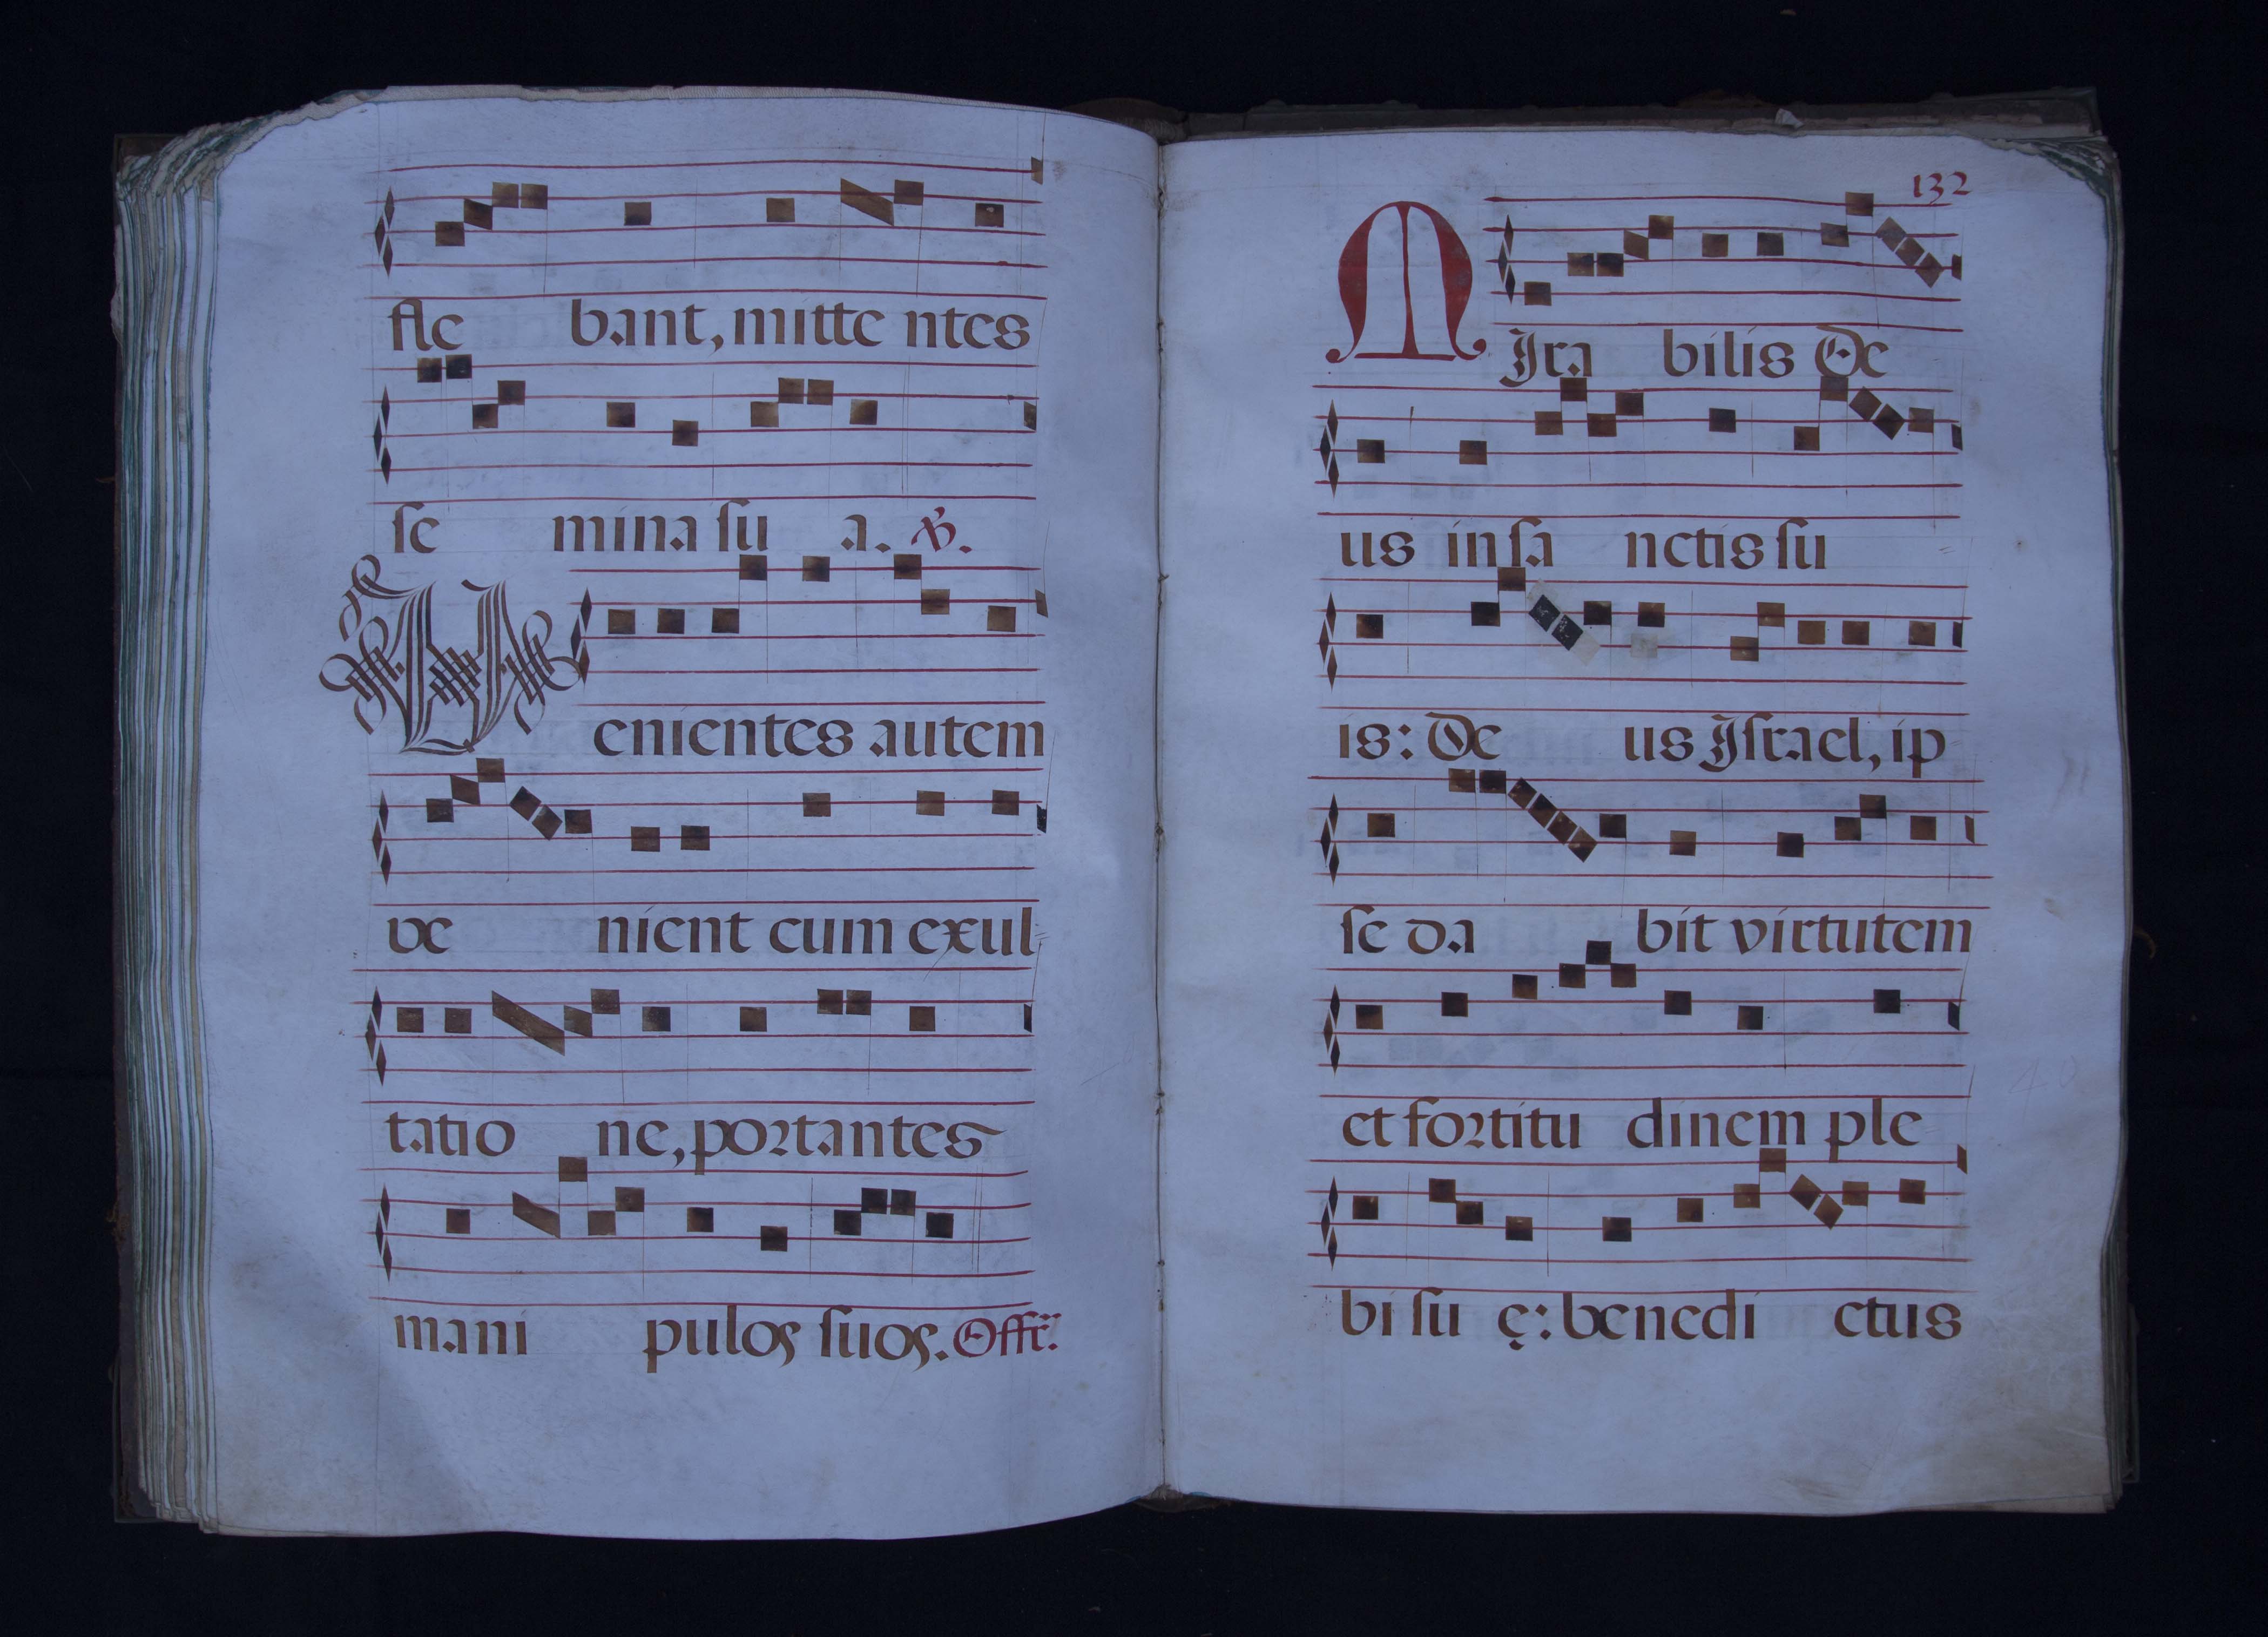 fle bant, mitte ntes
se mina su a. ℣.
Venientes autem
ve nient cum exul
tatio ne, portantes
mani pulos suos. Offr̄.
132
MIra bilis De
us in sa nctis su
is: De us Israel, ip
se da bit virtutem
et fortitu dinem ple
bi su ę: benedi ctus